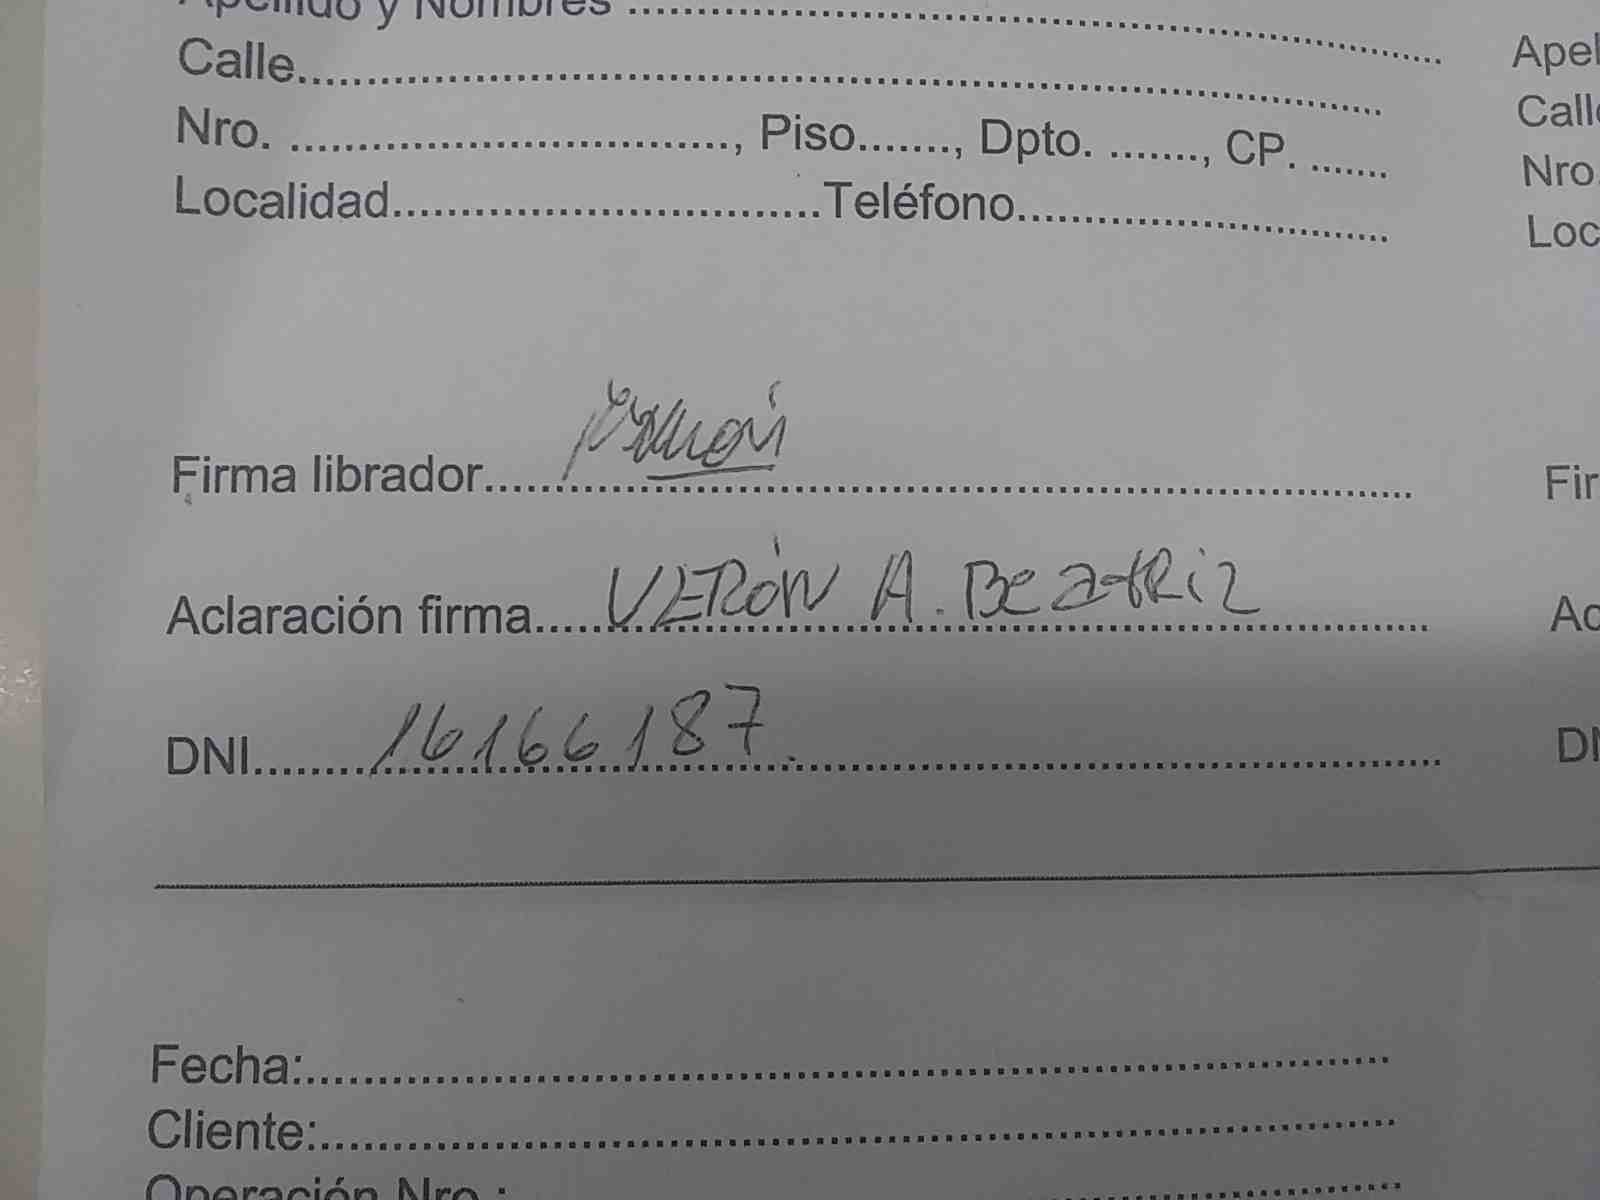 Apellido y Nombres ............................................................
Calle............................................................ Apel
Nro. ............................., Piso......., Dpto. ......., CP. ...... Calle
Localidad.............................Teléfono......................... Nro.
Loc
Firma librador............................................................ Fir
Aclaración firma..... VERÓN A. BEatRiz ..................... Ac
DNI........ 16166187. ............................................... DN
Fecha:............................................................
Cliente:............................................................
Operación Nro.:............................................................